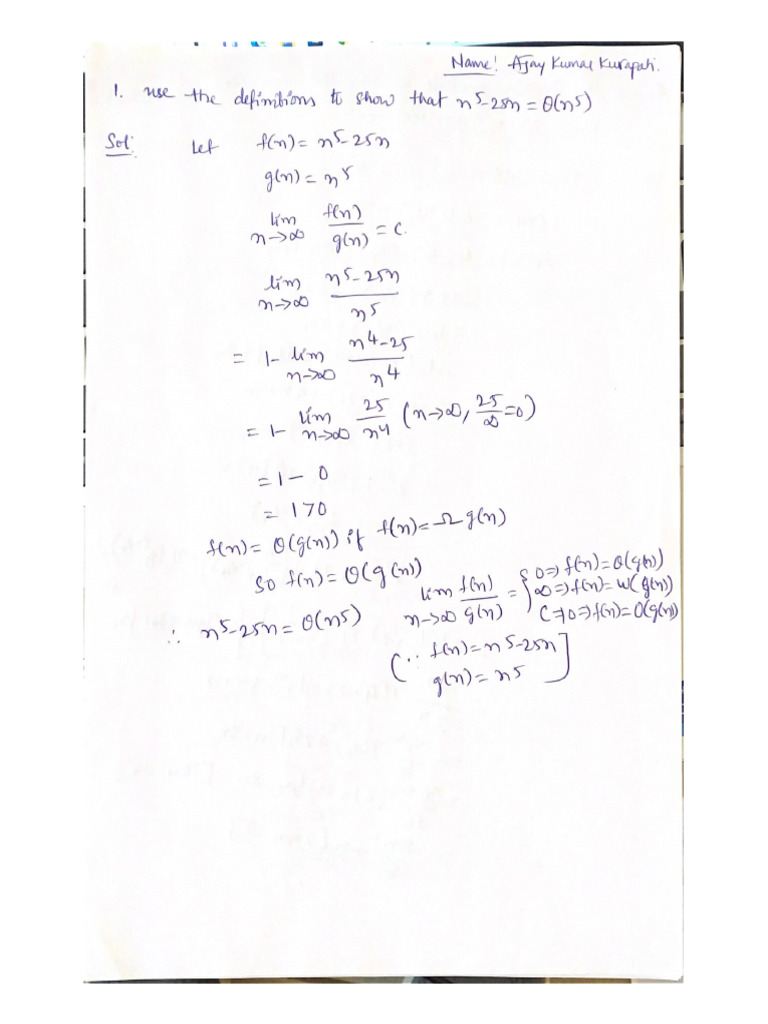 Name: Ajay Kumar Kurapati.
1. use the definitions to show that n⁵-25n = Θ(n⁵)
Sol: Let f(n) = n⁵-25n
g(n) = n⁵
lim n→∞ f(n)/g(n) = c.
lim n→∞ n⁵-25n/n⁵
= 1- lim n→∞ n⁴-25/n⁴
= 1- lim n→∞ 25/n⁴ (n→∞, 25/∞=0)
= 1 - 0
= 1>0
f(n) = Θ(g(n)) if f(n) = Ω g(n)
So f(n) = Θ(g(n))
∴ n⁵-25n = Θ(n⁵)
lim n→∞ f(n)/g(n) = { 0 ⇒ f(n) = O(g(n))
∞ ⇒ f(n) = ω(g(n))
C≠0 ⇒ f(n) = Θ(g(n))
(∵ f(n) = n⁵-25n
g(n) = n⁵ ]